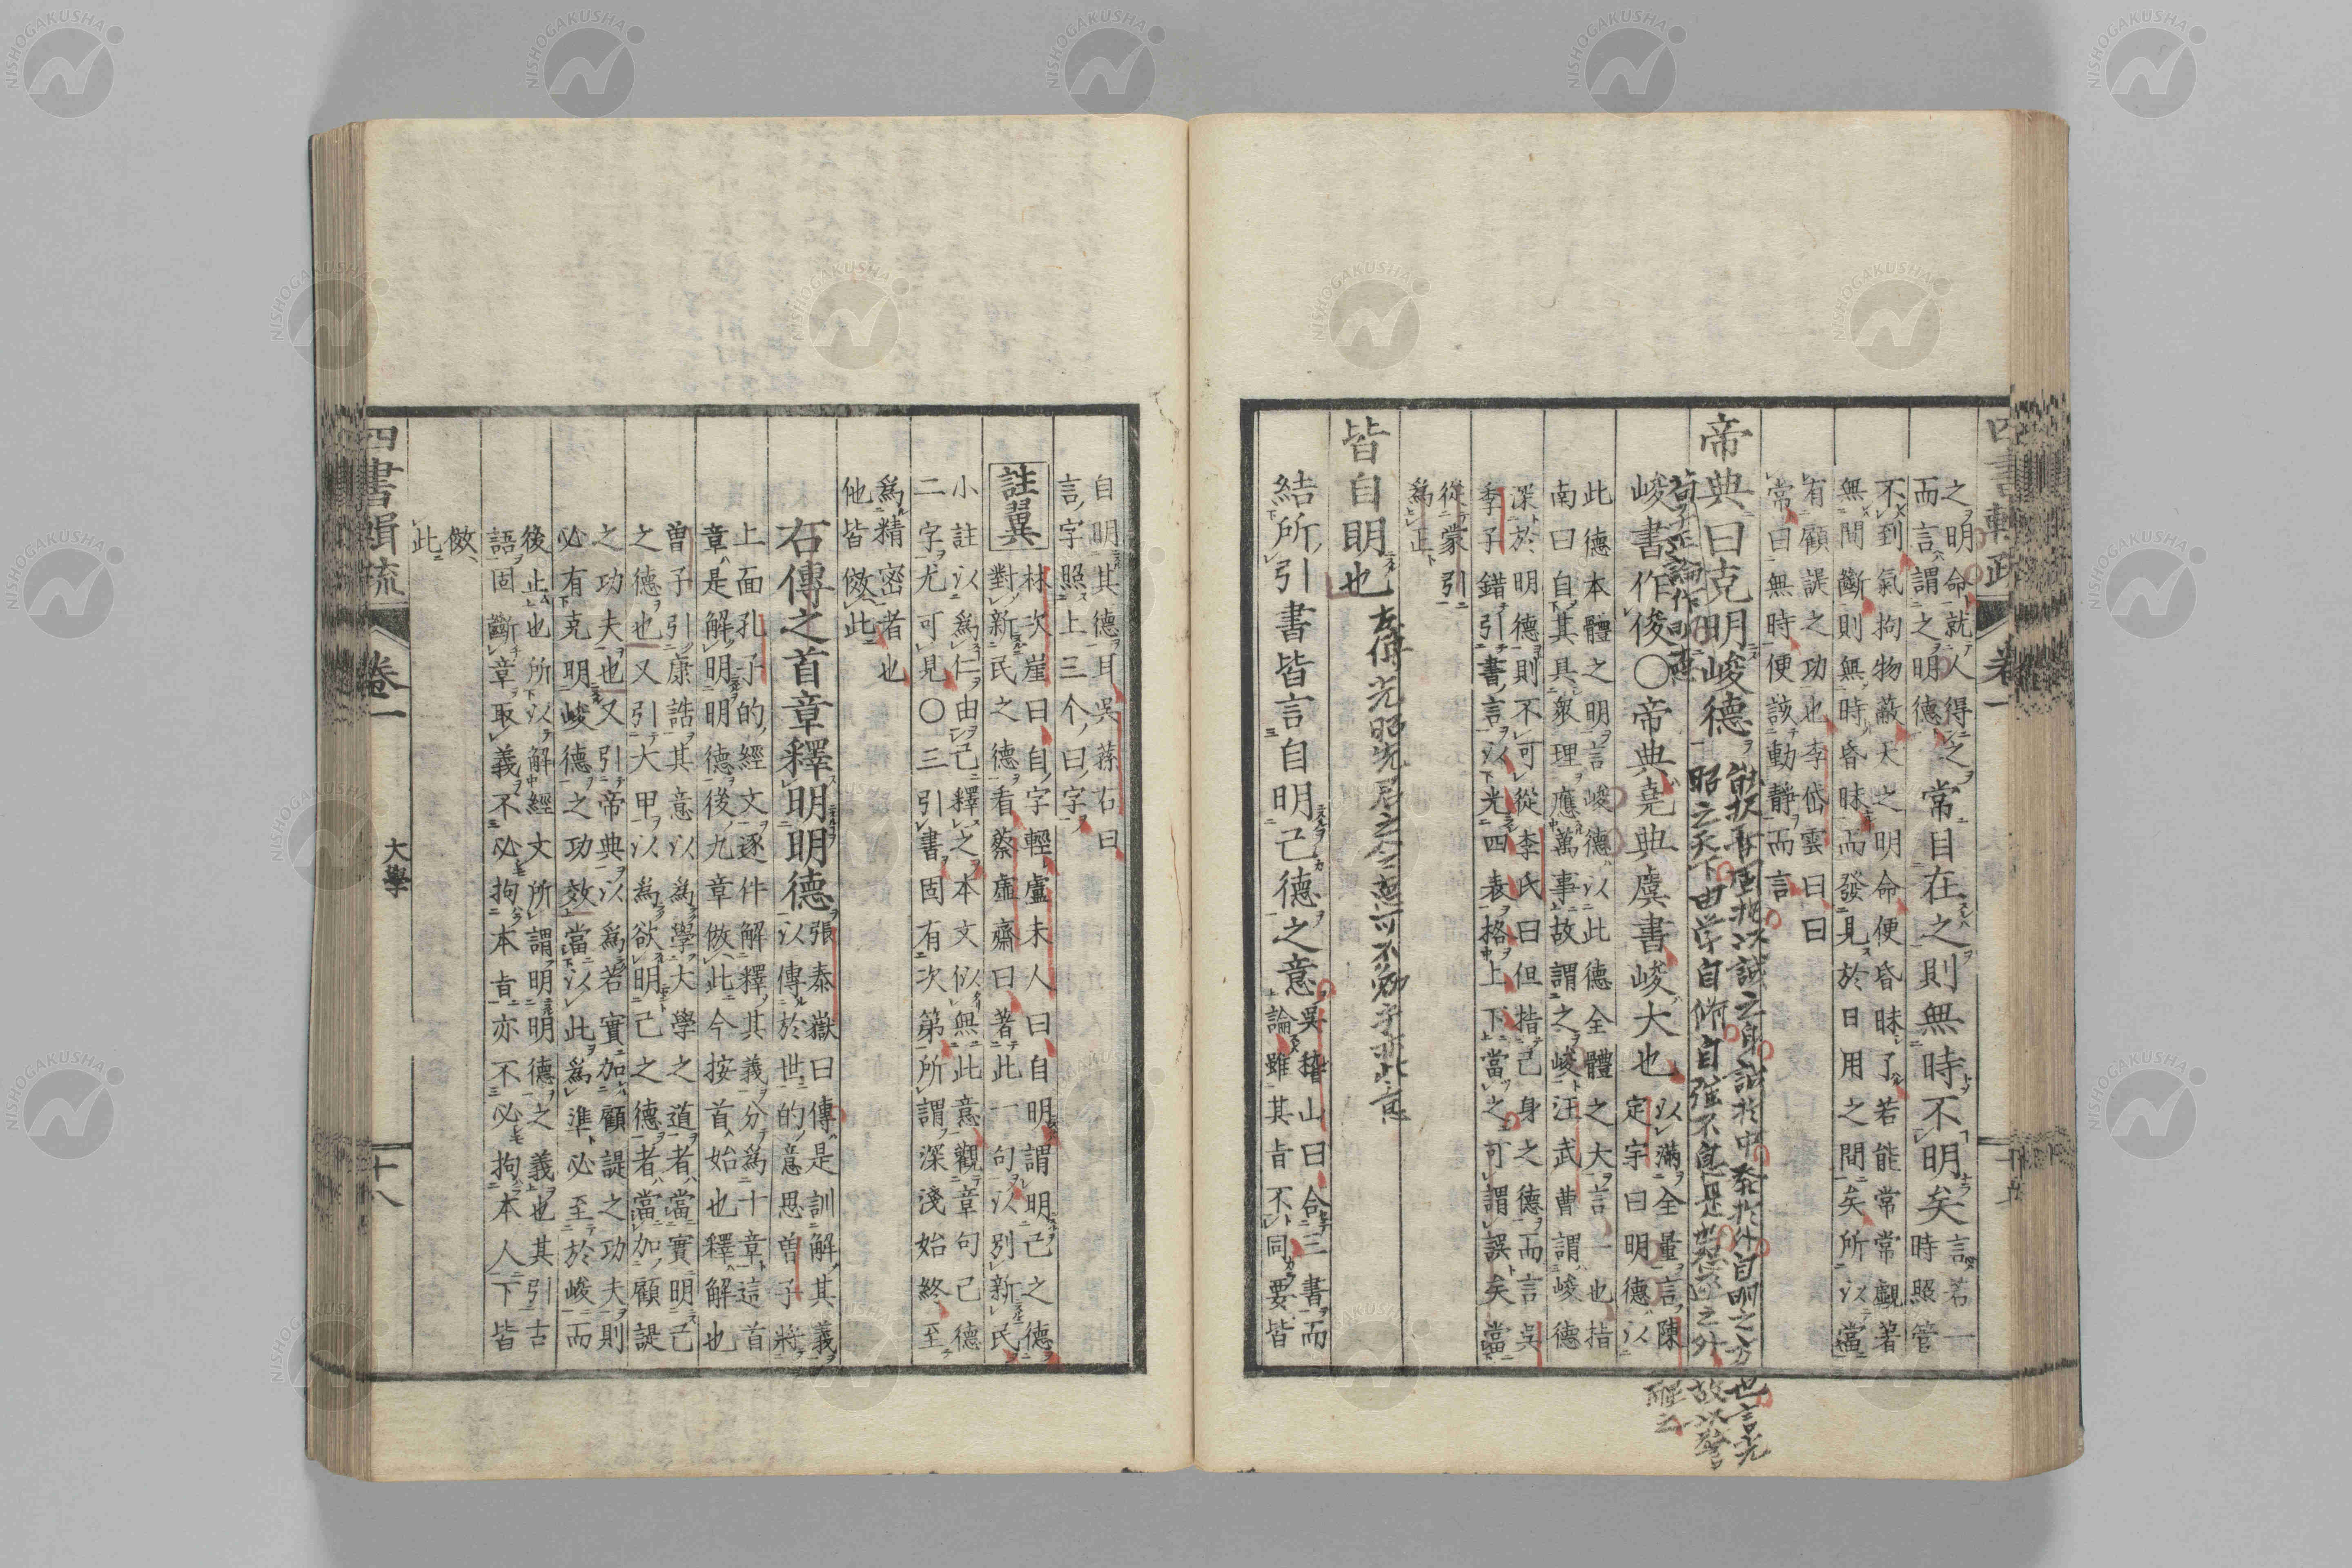 之明命就人得之
而言謂之明德
常目在之則無時不明矣
言若一
時照管
不到氣拘物蔽天之明命便昏昧了若能常常觀著
無間斷則無時昏昧而發見於日用之間矣所以當
有顧諟之功也李岱雲曰曰
常曰無時便該動靜而言
帝典曰克明峻德
荀子正論作明德
峻書作俊〇帝典堯典虞書峻大也
以滿全量言陳
定宇曰明德以
此德本體之明言峻德以此德全體之大言一也指
南曰自其具衆理應萬事故謂之峻汪武曹謂峻德
深於明德則不可從李氏曰但指己身之德而言吳
季子錯引書言以光四表格上下當之可謂誤矣當
從蒙引
爲正
皆自明也
結所引書皆言自明己德之意
吳稽山曰合三書而
論雖其旨不同要皆
自明其德耳吳蓀右曰
言字照上三个曰字
註翼
林次崖曰自字輕盧未人曰自明謂明己之德
對新民之德看蔡虛齋曰著此一句以別新民
小註以爲仁由己釋之本文似無此意觀章句己德
二字尤可見〇三引書固有次第所謂深淺始終至
爲精密者也
他皆倣此
右傳之首章釋明明德
張泰嶽曰傳是訓解其義
以傳於世的意思曾子將
上面孔子的經文逐件解釋其義分爲十章這首
章是解明明德後九章倣此今按首始也釋解也
曾子引康誥其意以爲學大學之道者當實明己
之德也又引大甲以爲欲明己之德者當加顧諟
之功夫也又引帝典以爲若實加顧諟之功夫則
必有克明峻德之功效當以此爲準必至於峻而
後止也所以解經文所謂明明德之義也其引古
語固斷章取義不必拘本旨亦不必拘本人下皆
倣
此
四書輯疏
卷一
大學
十八